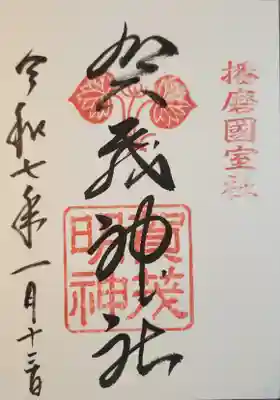 播磨國室社
賀茂神社
賀茂
明神
令和七年一月十二日